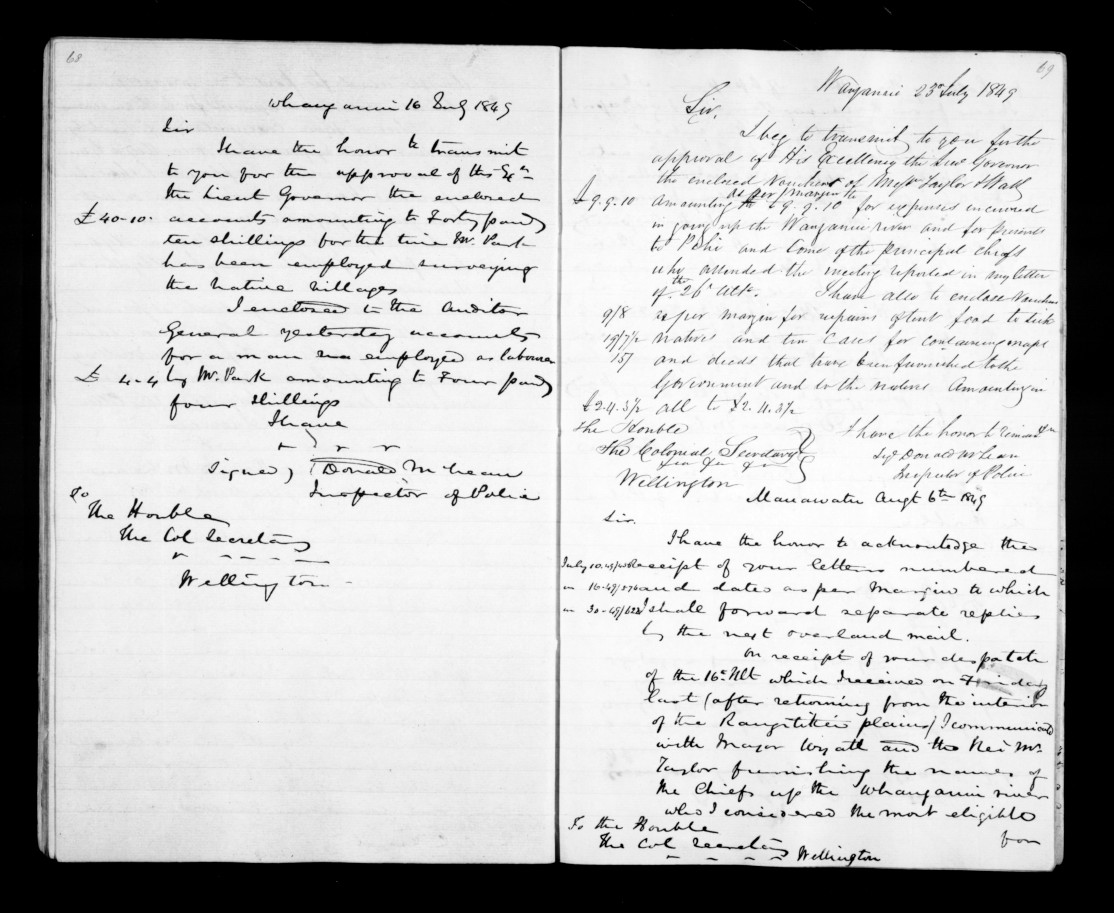 68
Whanganui 16 July 1849
Sir
I have the honor to transmit
to you for the approval of His Exn
the Lieut Governor the enclosed
£40-10- accounts amounting to Forty pounds
ten shillings for the time Mr. Park
has been employed surveying
the native villages
I enclosed to the Auditor
General yesterday accounts
for a man employed as labourer
£ 4-4 by Mr. Park amounting to Four pounds
four shillings
I have
Signed) Donald McLean
Inspector of Police
To
The Honble
The Col Secretary
Wellington
69
Wanganui 23rd July 1849
Sir,
I beg to transmit to you for the
approval of His Excellency the Lieut Governor
the enclosed Vouchers of Messrs Taylor & Watt
as per margin
£9.9.10 amounting to £9.9.10 for expenses incurred
in going up the Wanganui river and for presents
to Pehi and some of the principal chiefs
who attended the meeting reported in my letter
of 26th Ult. I have also to enclose Vouchers
9/8 as per margin for repairs of tent food to sick
19/7½ natives and tin cases for containing maps
15/ and deeds that have been furnished to the
Government and to the natives Amounting in
£2.4.3½ all to £2.4.3½
The Honble
The Colonial Secretary
Wellington
I have the honor to remain
Sigd Donald McLean
Inspector of Police
Manawatu Augt 6th 1849
Sir.
I have the honor to acknowledge the
receipt of your letters numbered
and dated as per Margin to which
I shall forward separate replies
by the next overland mail.
On receipt of your despatch
of the 16th Ult which I received on Friday
last (after returning from the interior
of the Rangitikei plains) I communicated
with Major Wyatt and the Revd Mr.
Taylor furnishing the names of
the Chiefs up the Whanganui river
who I considered the most eligible
from
To the Honble
The Col Secretary
Wellington